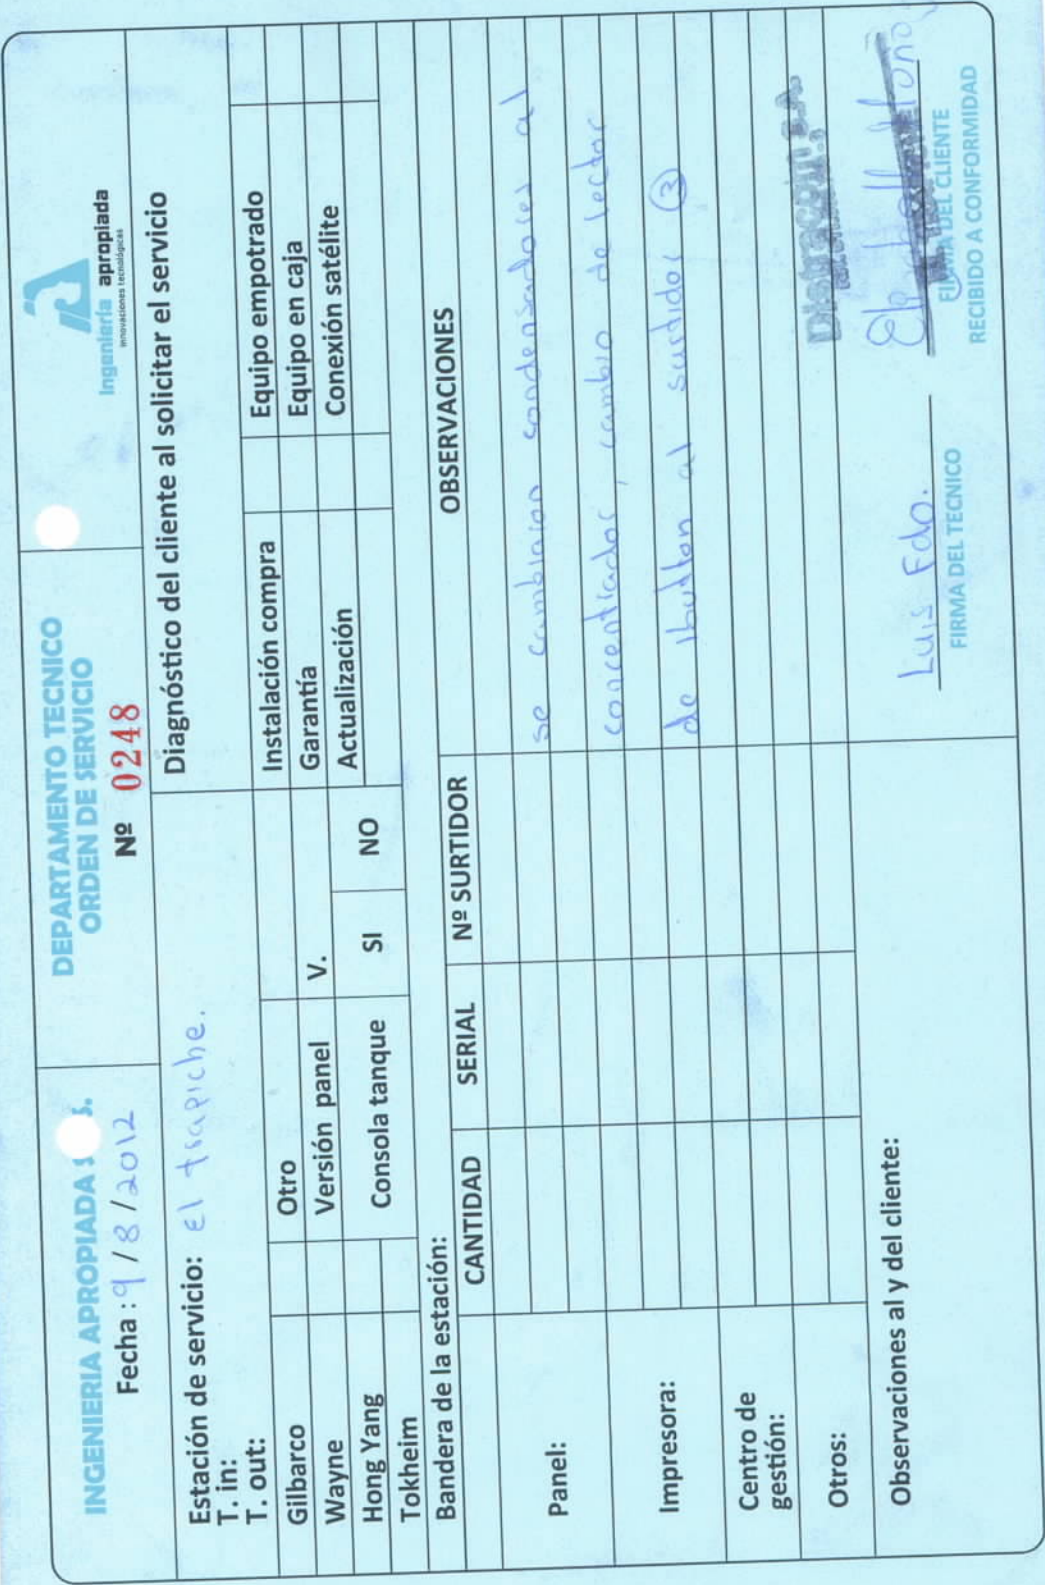 INGENIERIA APROPIADA S. S.
Fecha : 9 / 8 / 2012
DEPARTAMENTO TECNICO
ORDEN DE SERVICIO
Nº 0248
Ingeniería apropiada
innovaciones tecnológicas
Estación de servicio: el trapiche.
T. in:
T. out:
Diagnóstico del cliente al solicitar el servicio
Gilbarco Otro Instalación compra Equipo empotrado
Wayne Versión panel V. Garantía Equipo en caja
Hong Yang Consola tanque SI NO Actualización Conexión satélite
Tokheim
Bandera de la estación:
CANTIDAD SERIAL Nº SURTIDOR OBSERVACIONES
Panel:
se cambiaron condensadores al
concentrador, cambio de lector
Impresora:
de ibutton al surtidor 3
Centro de
gestión:
Otros:
Distracom S.A
Observaciones al y del cliente:
Luis Fdo.
FIRMA DEL TECNICO
FIRMA DEL CLIENTE
RECIBIDO A CONFORMIDAD